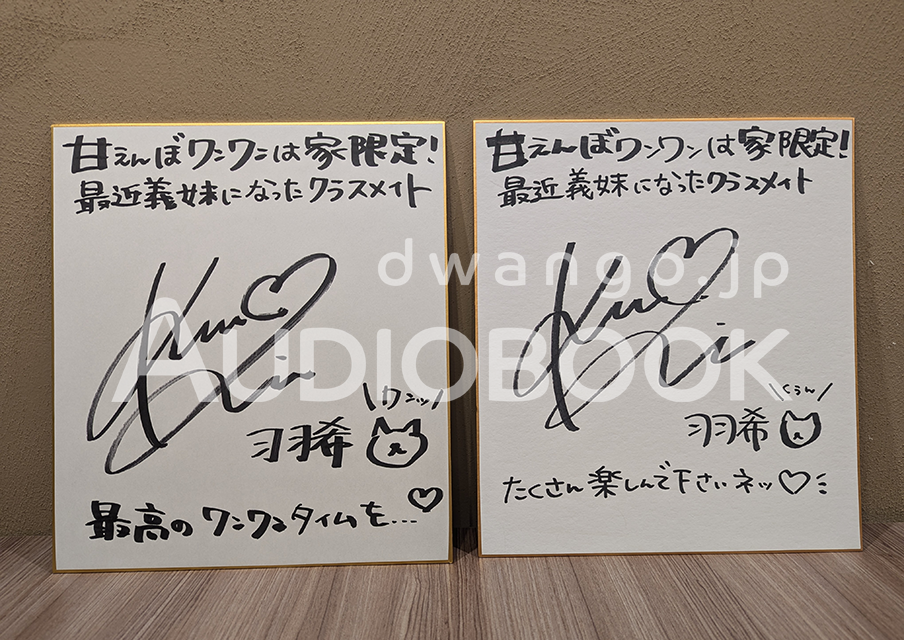 甘えんぼワンワンは家限定!
最近義妹になったクラスメイト
\ワンッ/
羽希
最高のワンワンタイムを…♡
甘えんぼワンワンは家限定!
最近義妹になったクラスメイト
\くぅん/
羽希
たくさん楽しんで下さいネッ♡
dwango.jp
AUDIOBOOK